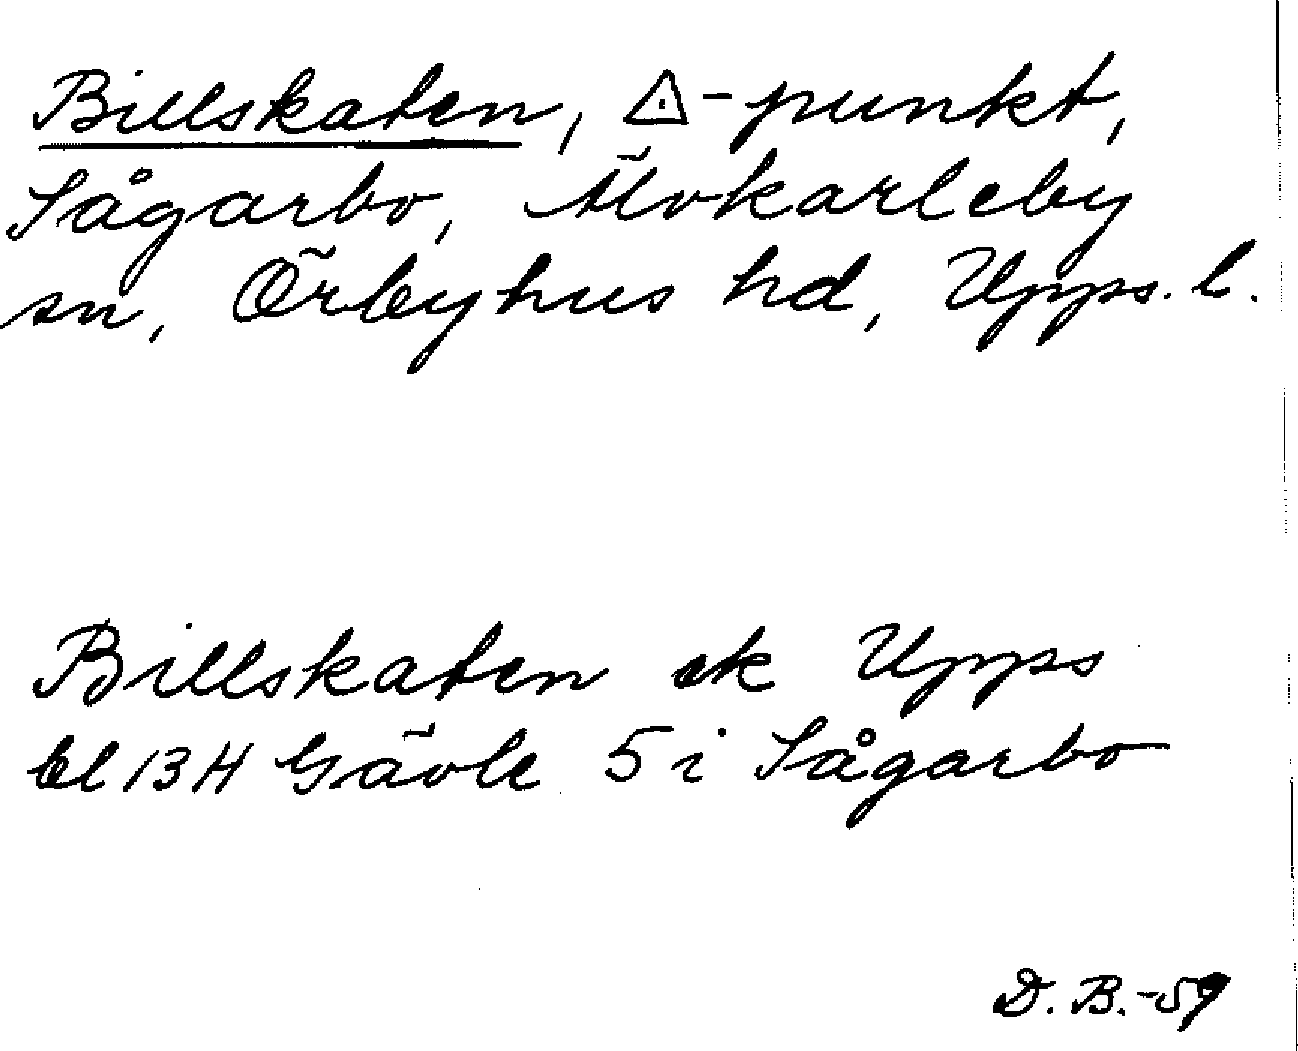 Billskaten, △-punkt,
Sågarbo, Älvkarleby
sn, Örbyhus hd, Upps. l.
Billskaten ek Upps
bl 13H Gävle 5i Sågarbo
D. B. -59